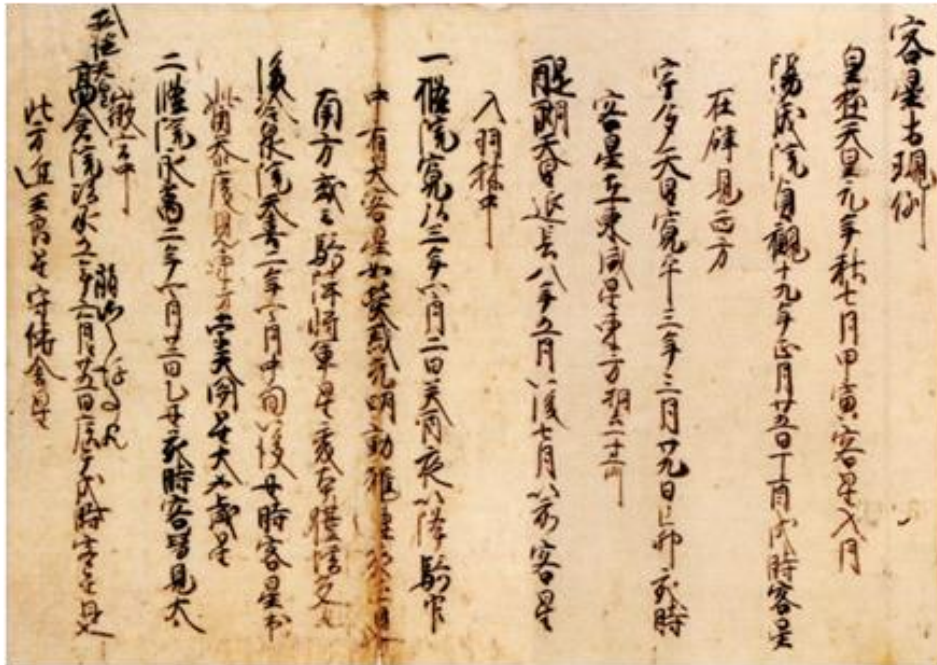 客星古現例
皇極天皇元年秋七月甲寅客星入月
陽成院貞観十九年正月廿五日丁酉戌時客星
在壁見西方
宇多天皇寛平三年三月廿九日己卯亥時
客星在東咸星東方相去一寸所
醍醐天皇延長八年五月以後七月以前客星
入羽林中
一條院寛弘三年四月二日癸酉夜以降騎官
中有大客星如熒惑光明動耀連夜正見
南方或云騎陣将軍星変本体増光
後冷泉院天喜二年四月中旬以後丑時客星出
觜参度見東方孛天関星大如歳星
二條院永万二年四月廿二日乙丑亥時客星見大
微宮中
高倉院治承五年六月廿五日庚午戌時客星見
北方近王良星守伝舎星